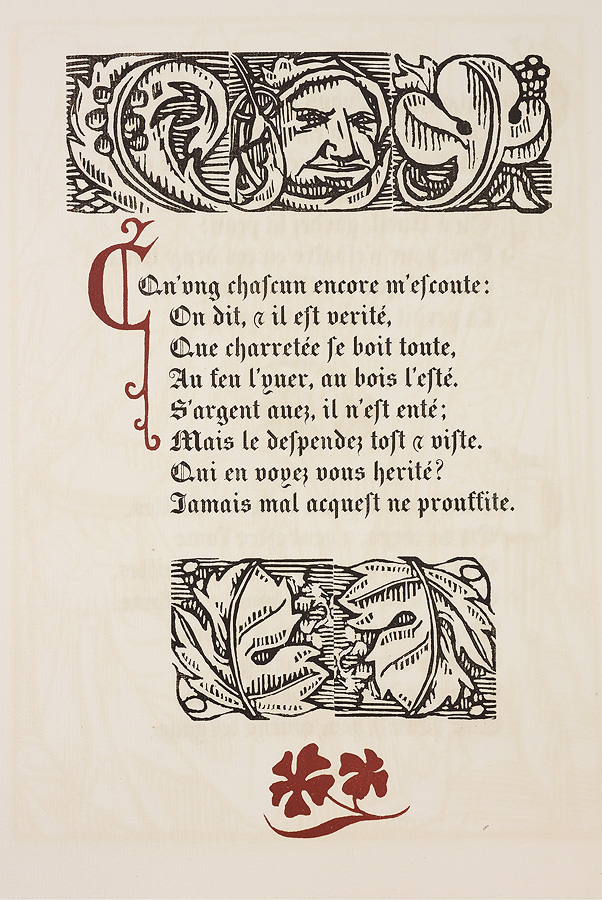 Qu'vng chaſcun encore m'eſcoute:
On dit, ⁊ il eſt verité,
Que charretée ſe boit toute,
Au feu l'yuer, au bois l'eſté.
S'argent auez, il n'eſt enté;
Mais le deſpendez toſt ⁊ viſte.
Qui en voyez vous herité?
Jamais mal acqueſt ne prouffite.